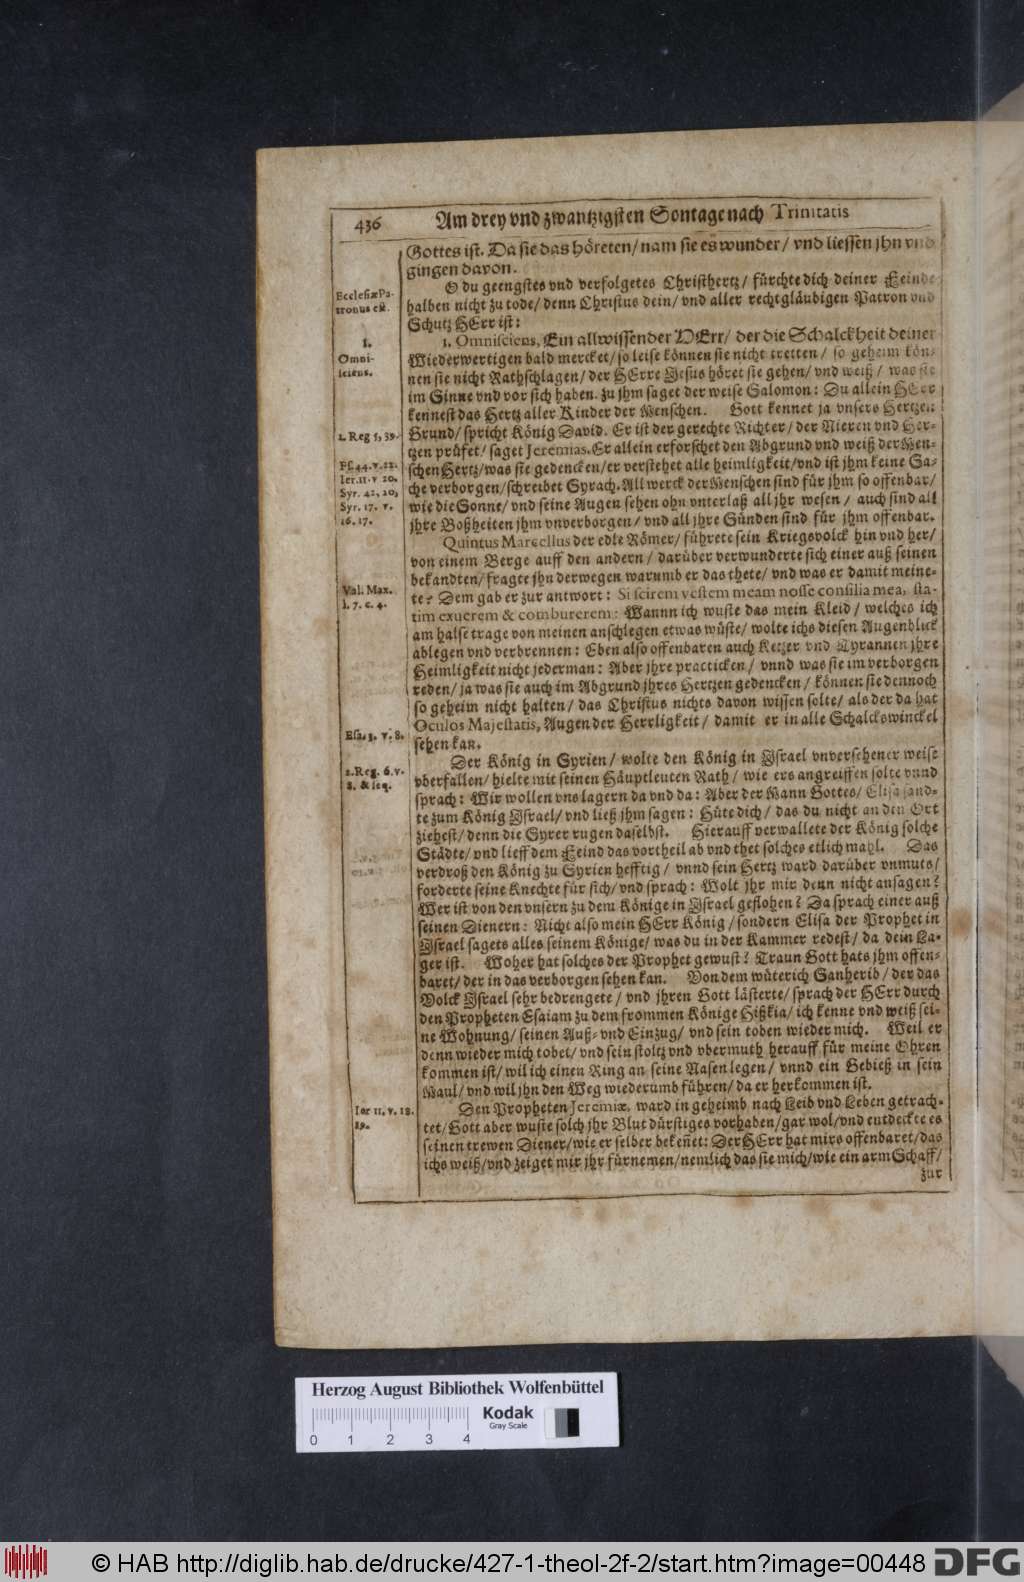 436 Am drey vnd zwantzigsten Sontage nach Trinitatis
Gottes ist. Da sie das höreten/ nam sie es wunder/ vnd liessen jhn vnd
gingen davon.
O du geengstes vnd verfolgetes Christhertz/ fürchte dich deiner Feinde
halben nicht zu tode/ denn Christus dein/ vnd aller rechtgläubigen Patron vnd
Schutz HErr ist:
Ecclesiæ Pa-
tronus est.
1. Omnisciens, Ein allwissender HErr/ der die Schalckheit deiner
Wiederwertigen bald mercket/ so leise können sie nicht tretten/ so geheim kön-
nen sie nicht Rathschlagen/ der HErre Jesus höret sie gehen/ vnd weiß/ was sie
im Sinne vnd vor sich haben. zu jhm saget der weise Salomon: Du allein HErr
kennest das Hertz aller Kinder der Menschen. Gott kennet ja vnsers Hertzen
Grund/ spricht König David. Er ist der gerechte Richter/ der Nieren vnd Her-
tzen prüfet/ saget Jeremias. Er allein erforschet den Abgrund vnd weiß der Men-
schen Hertz/ was sie gedencken/ er verstehet alle heimligkeit/ vnd ist jhm keine Sa-
che verborgen/ schreibet Syrach. All werck der Menschen sind für jhm so offenbar/
wie die Sonne/ vnd seine Augen sehen ohn vnterlaß all jhr wesen/ auch sind all
jhre Boßheiten jhm vnverborgen/ vnd all jhre Sünden sind für jhm offenbar.
1.
Omni-
sciens.
1. Reg 8, 39.
Ps. 44. v. 22.
Ier. 11. v 20.
Syr. 42, 20,
Syr. 17. v.
16. 17.
Quintus Marcellus der edle Römer/ führete sein Kriegsvolck hin vnd her/
von einem Berge auff den andern/ darüber verwunderte sich einer auß seinen
bekandten/ fragte jhn derwegen warumb er das thete/ vnd was er damit meine-
te? Dem gab er zur antwort: Si scirem vestem meam nosse consilia mea, sta-
tim exuerem & comburerem: Wannn ich wuste das mein Kleid/ welches ich
am halse trage von meinen anschlegen etwas wüste/ wolte ichs diesen Augenblick
ablegen vnd verbrennen: Eben also offenbaren auch Ketzer vnd Tyrannen jhre
Heimligkeit nicht jederman: Aber jhre practicken/ vnnd was sie im verborgen
reden/ ja was sie auch im Abgrund jhres Hertzen gedencken/ können sie dennoch
so geheim nicht halten/ das Christus nichts davon wissen solte/ als der da hat
Oculos Majestatis, Augen der Herrligkeit/ damit er in alle Schalckswinckel
sehen kan.
Val. Max.
l. 7. c. 4.
Esa. 3. v. 8.
Der König in Syrien/ wolte den König in Jsrael vnversehener weise
vberfallen/ hielte mit seinen Häuptleuten Rath/ wie ers angreiffen solte vnnd
sprach: Wir wollen vns lagern da vnd da: Aber der Mann Gottes/ Elisa sand-
te zum König Jsrael/ vnd ließ jhm sagen: Hüte dich/ das du nicht an den Ort
ziehest/ denn die Syrer rugen daselbst. Hierauff verwallete der König solche
Städte/ vnd lieff dem Feind das vortheil ab vnd thet solches etlich mahl. Das
verdroß den König zu Syrien hefftig/ vnnd sein Hertz ward darüber vnmuts/
forderte seine Knechte für sich/ vnd sprach: Wolt jhr mir denn nicht ansagen?
Wer ist von den vnsern zu dem Könige in Jsrael geflohen? Da sprach einer auß
seinen Dienern: Nicht also mein HErr König/ sondern Elisa der Prophet in
Jsrael sagets alles seinem Könige/ was du in der Kammer redest/ da dein La-
ger ist. Woher hat solches der Prophet gewust? Traun Gott hats jhm offen-
baret/ der in das verborgen sehen kan. Von dem wüterich Sanherib/ der das
Volck Jsrael sehr bedrengete/ vnd jhren Gott lästerte/ sprach der HErr durch
den Propheten Esaiam zu dem frommen Könige Hißkia/ ich kenne vnd weiß sei-
ne Wohnung/ seinen Auß- vnd Einzug/ vnd sein toben wieder mich. Weil er
denn wieder mich tobet/ vnd sein stoltz vnd vbermuth herauff für meine Ohren
kommen ist/ wil ich einen Ring an seine Nasen legen/ vnnd ein Gebieß in sein
Maul/ vnd wil jhn den Weg wiederumb führen/ da er herkommen ist.
2. Reg. 6. v.
8. & seq.
Den Propheten Jeremiæ, ward in geheimb nach Leib vnd Leben getrach-
tet/ Gott aber wuste solch jhr Blut dürstiges vorhaben/ gar wol/ vnd entdeckte es
seinen trewen Diener/ wie er selber bekeñet: Der HErr hat mirs offenbaret/ das
ichs weiß/ vnd zeiget mir jhr fürnemen/ nemlich das sie mich/ wie ein arm Schaff/
zur
Ier 11. v. 18.
19.
Herzog August Bibliothek Wolfenbüttel
Kodak
Gray Scale
0 1 2 3 4
© HAB http://diglib.hab.de/drucke/427-1-theol-2f-2/start.htm?image=00448 DFG